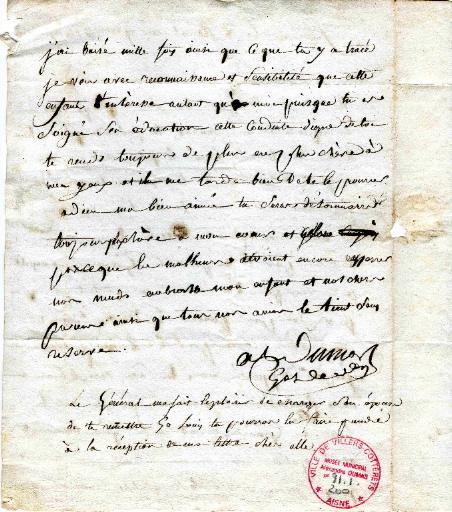 j'ai baisé mille fois ainsi que ce que tu y a tracé
je vois avec reconnaissance et sensibilité que cette
enfant t'interesse autant qu'à moi puisque tu as
soigné son éducation cette conduite digne de toi
te rends toujours de plus en plus chère à
mes yeux et il me tarde bien de te le prouver
adieu ma bien aimée tu seras désormais
toujours plus chère à mon coeur et
parceque les malheurs doivent encore resserrer
nos nœuds embrasse mon enfant et nos chers
parens ainsi que tous nos amis le tout sans
reserve.
Alex Dumas
Gal de don
Le Général ma fait le plaisir de charger son épouse
de te remettre 50 Louis tu pourras les faire prendre
à la réception de ma lettre chez elle
VILLE DE VILLERS-COTTERETS
MUSEE MUNICIPAL
Alexandre DUMAS
AISNE